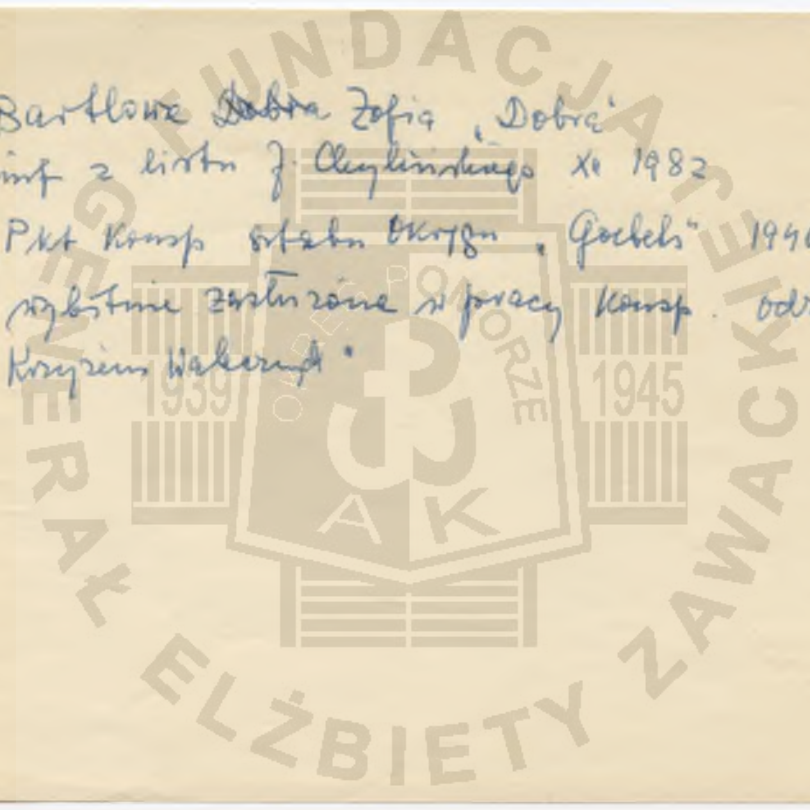 Bartlowa Dobra Zofia „Dobra"
inf z listu J. Chylińskiego XI 1982
Pkt Konsp sztabu Okręgu „Goebels" 194
wybitnie zasłużona w pracy Konsp. odz
Krzyżem Walecznych"
FUNDACJA
GENERAŁ ELŻBIETY ZAWACKIEJ
OKRĘG POMORZE
1939
1945
AK